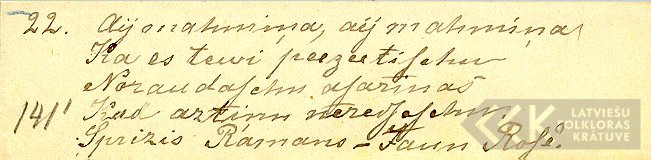 22. Aij mahmiņa, aij mahmiņa
Ka es tewi peezeetischu
Noraudaschu asariņas
1411 Kad aztiņu neredseschu.
Sprizis Rāmans – Jaun Rosē.
LATVIEŠU
FOLKLORAS
KRĀTUVE